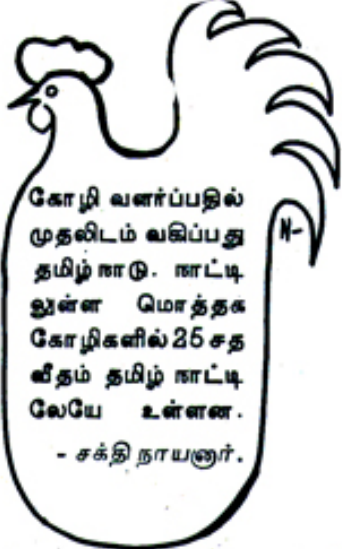 கோழி வளர்ப்பதில்
முதலிடம் வகிப்பது
தமிழ்நாடு. நாட்டி
லுள்ள மொத்தக
கோழிகளில் 25 சத
வீதம் தமிழ் நாட்டி
லேயே உள்ளன.
- சக்தி நாயனார்.
N-